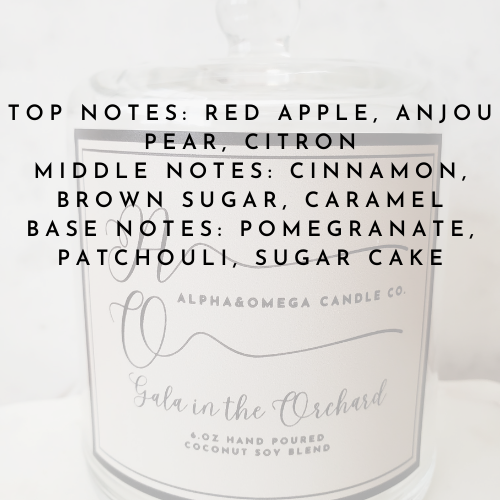 TOP NOTES: RED APPLE, ANJOU
PEAR, CITRON
MIDDLE NOTES: CINNAMON,
BROWN SUGAR, CARAMEL
BASE NOTES: POMEGRANATE,
PATCHOULI, SUGAR CAKE
A
O
ALPHA&OMEGA CANDLE CO.
Gala in the Orchard
6.OZ HAND POURED
COCONUT SOY BLEND